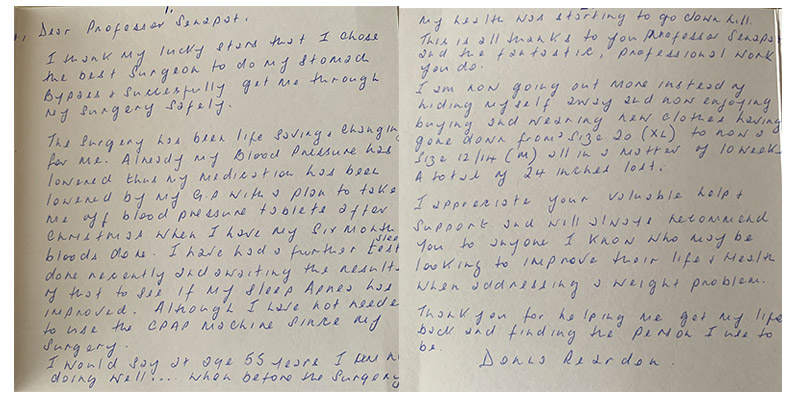 1.
Dear Professor Senapati,
I thank my lucky stars that I chose
the best Surgeon to do my stomach
Bypass & successfully get me through
my surgery safely.
The surgery has been life saving & changing
for me. Already my Blood Pressure has
lowered thus my medication has been
lowered by my G.P with a plan to take
me off blood pressure tablets after
Christmas when I have my Six month
bloods done. I have had a further sleep test
done recently and awaiting the results
of that to see if my Sleep Apnea has
improved. Although I have not needed
to use the CPAP machine since my
surgery.
I would say at age 55 years I
doing well... when before the surgery
my health was starting to go down hill.
This is all thanks to you Professor Senapati
and the fantastic, professional work
you do.
I am now going out more instead of
hiding myself away and now enjoying
buying and wearing new clothes having
gone down from a size 20 (XL) to now a
size 12/14 (M) all in a matter of 10 weeks
A total of 24 inches lost.
I appreciate your valuable help &
support and will always recommend
you to anyone I know who may be
looking to improve their life & Health
when addressing a weight problem.
Thank you for helping me get my life
back and finding the person I use to
be.
Donna Reardon.